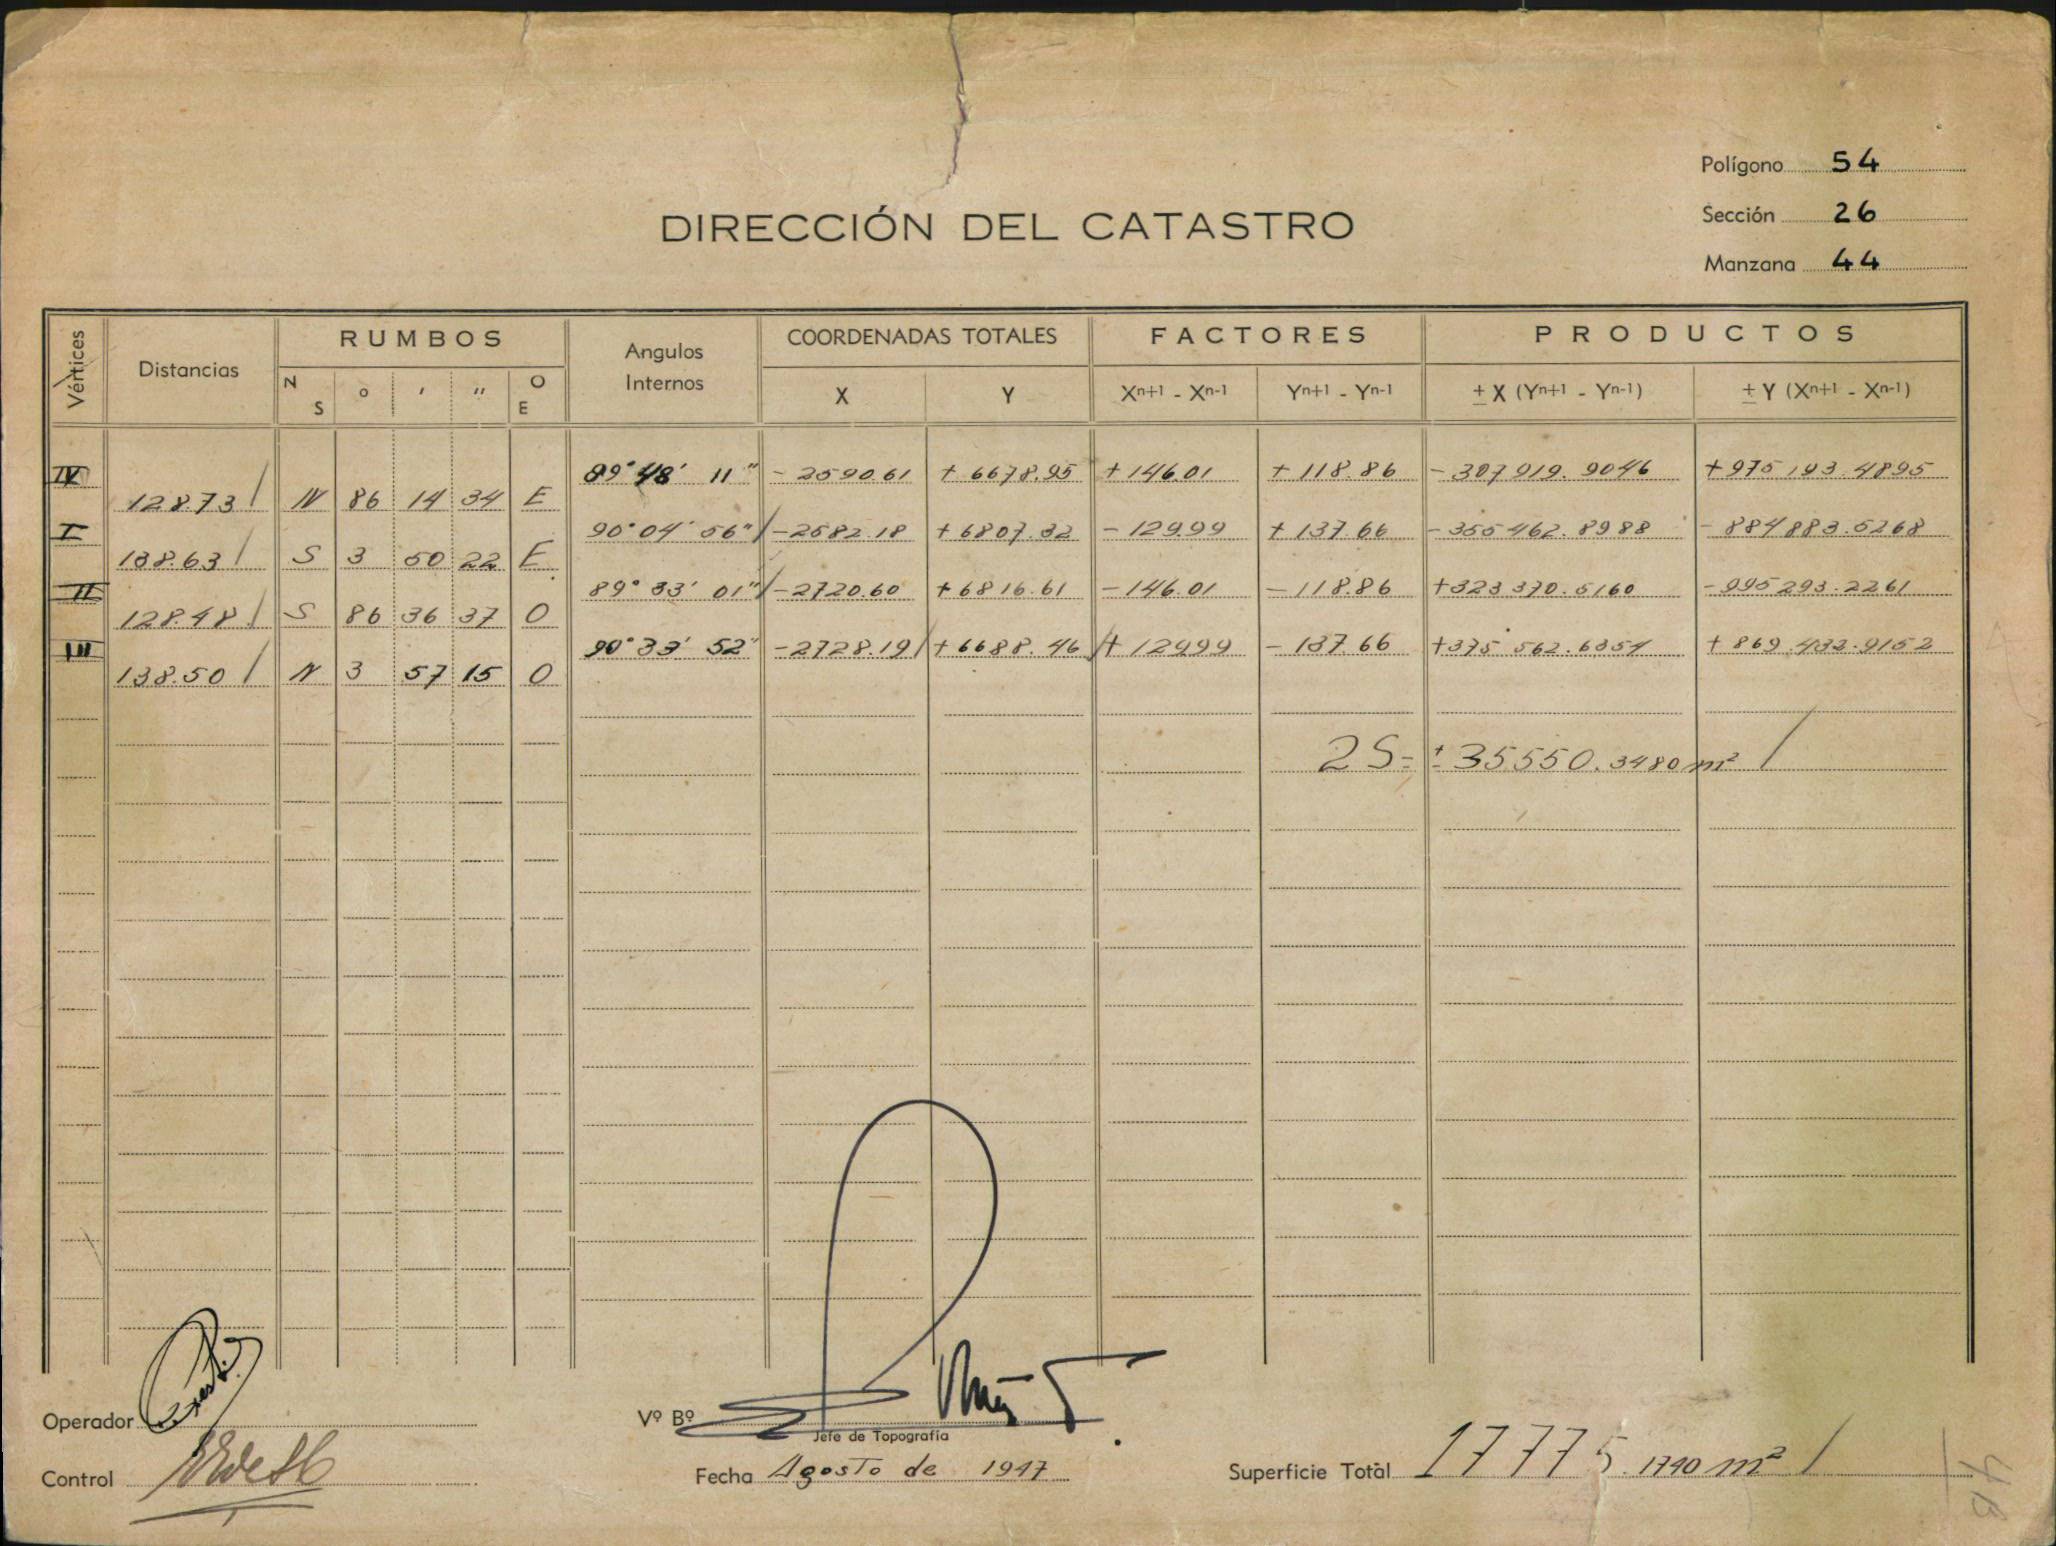 Polígono 54
Sección 26
DIRECCIÓN DEL CATASTRO
Manzana 44
Vértices Distancias RUMBOS Angulos Internos COORDENADAS TOTALES FACTORES PRODUCTOS
N S o ' " O E X Y Xn+1 - Xn-1 Yn+1 - Yn-1 ± X (Yn+1 - Yn-1) ± Y (Xn+1 - Xn-1)
IV 89° 48' 11" - 2590.61 + 6678.95 + 146.01 + 118.86 - 307919.9046 + 975193.4895
128.73 N 86 14 34 E
I 90° 04' 56" - 2582.18 + 6807.32 - 129.99 + 137.66 - 355462.8988 - 884883.5268
138.63 S 3 50 22 E
II 89° 33' 01" - 2720.60 + 6816.61 - 146.01 - 118.86 + 323370.5160 - 995293.2261
128.48 S 86 36 37 O
III 90° 33' 52" - 2728.19 + 6688.46 + 129.99 - 137.66 + 375562.6354 + 869.433.9152
138.50 N 3 57 15 O
2 S = ± 35550.3480 m²
Operador
Vº Bº
Jefe de Topografía
Control
Fecha Agosto de 1947
Superficie Total 17775.1740 m²